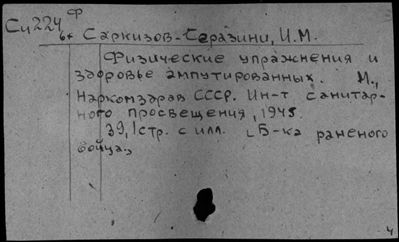 Си224 Ф
6* Саркизов-Серазини, И.М.
Физические упражнения и
здоровье ампутированных. М.,
Наркомздрав СССР. Ин-т санитар-
ного просвещения, 1945.
39,1стр. с илл. [Б-ка раненого
бойца.]
4